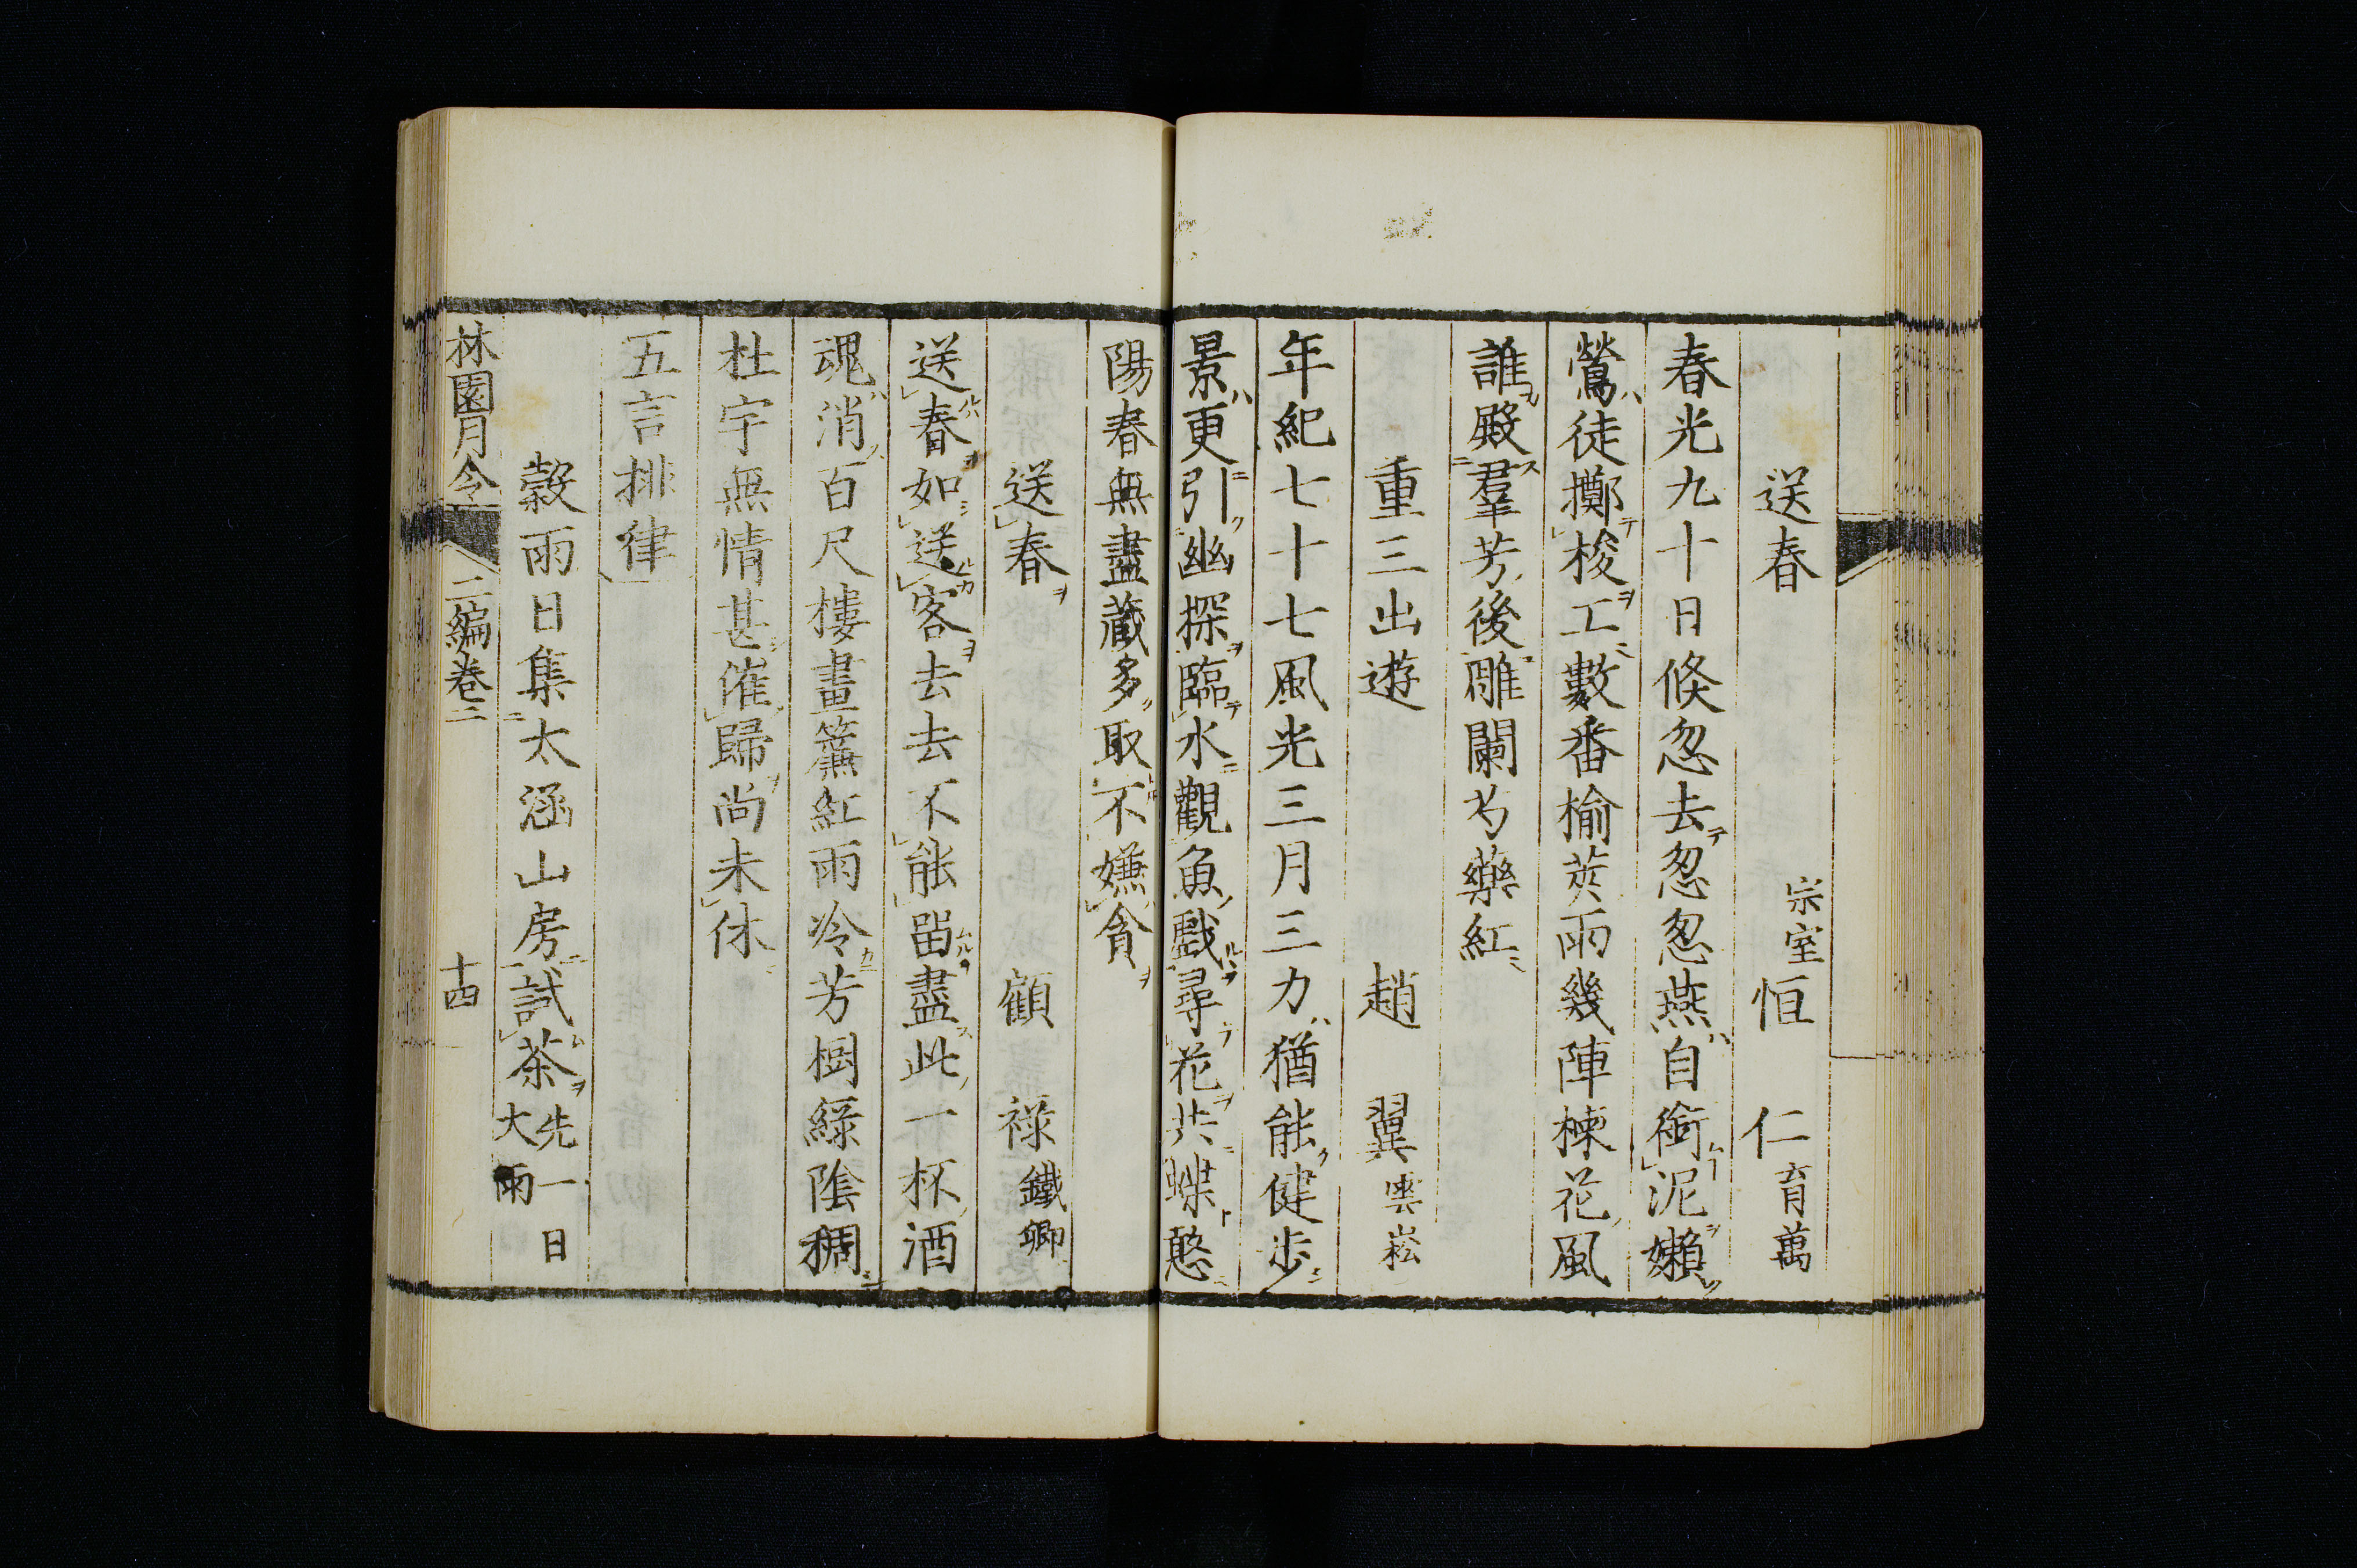 送春 宗室 恒 仁 育萬
春光九十日倏忽去怱怱燕自銜泥嬾
鶯徒擲梭工數番榆莢雨幾陣楝花風
誰殿羣芳後雕闌芍藥紅
重三出遊 趙 翼 雲崧
年紀七十七風光三月三力猶能健步
景更引幽探臨水觀魚戲尋花共蝶憨
陽春無盡藏多取不嫌貪
送春 顧 祿 鐵卿
送春如送客去去不能留盡此一杯酒
魂消百尺樓畫簾紅雨冷芳樹綠陰稠
杜宇無情甚催歸尚未休
五言排律
穀雨日集太涵山房試茶 先一日大雨
林園月令 二編卷二 十四